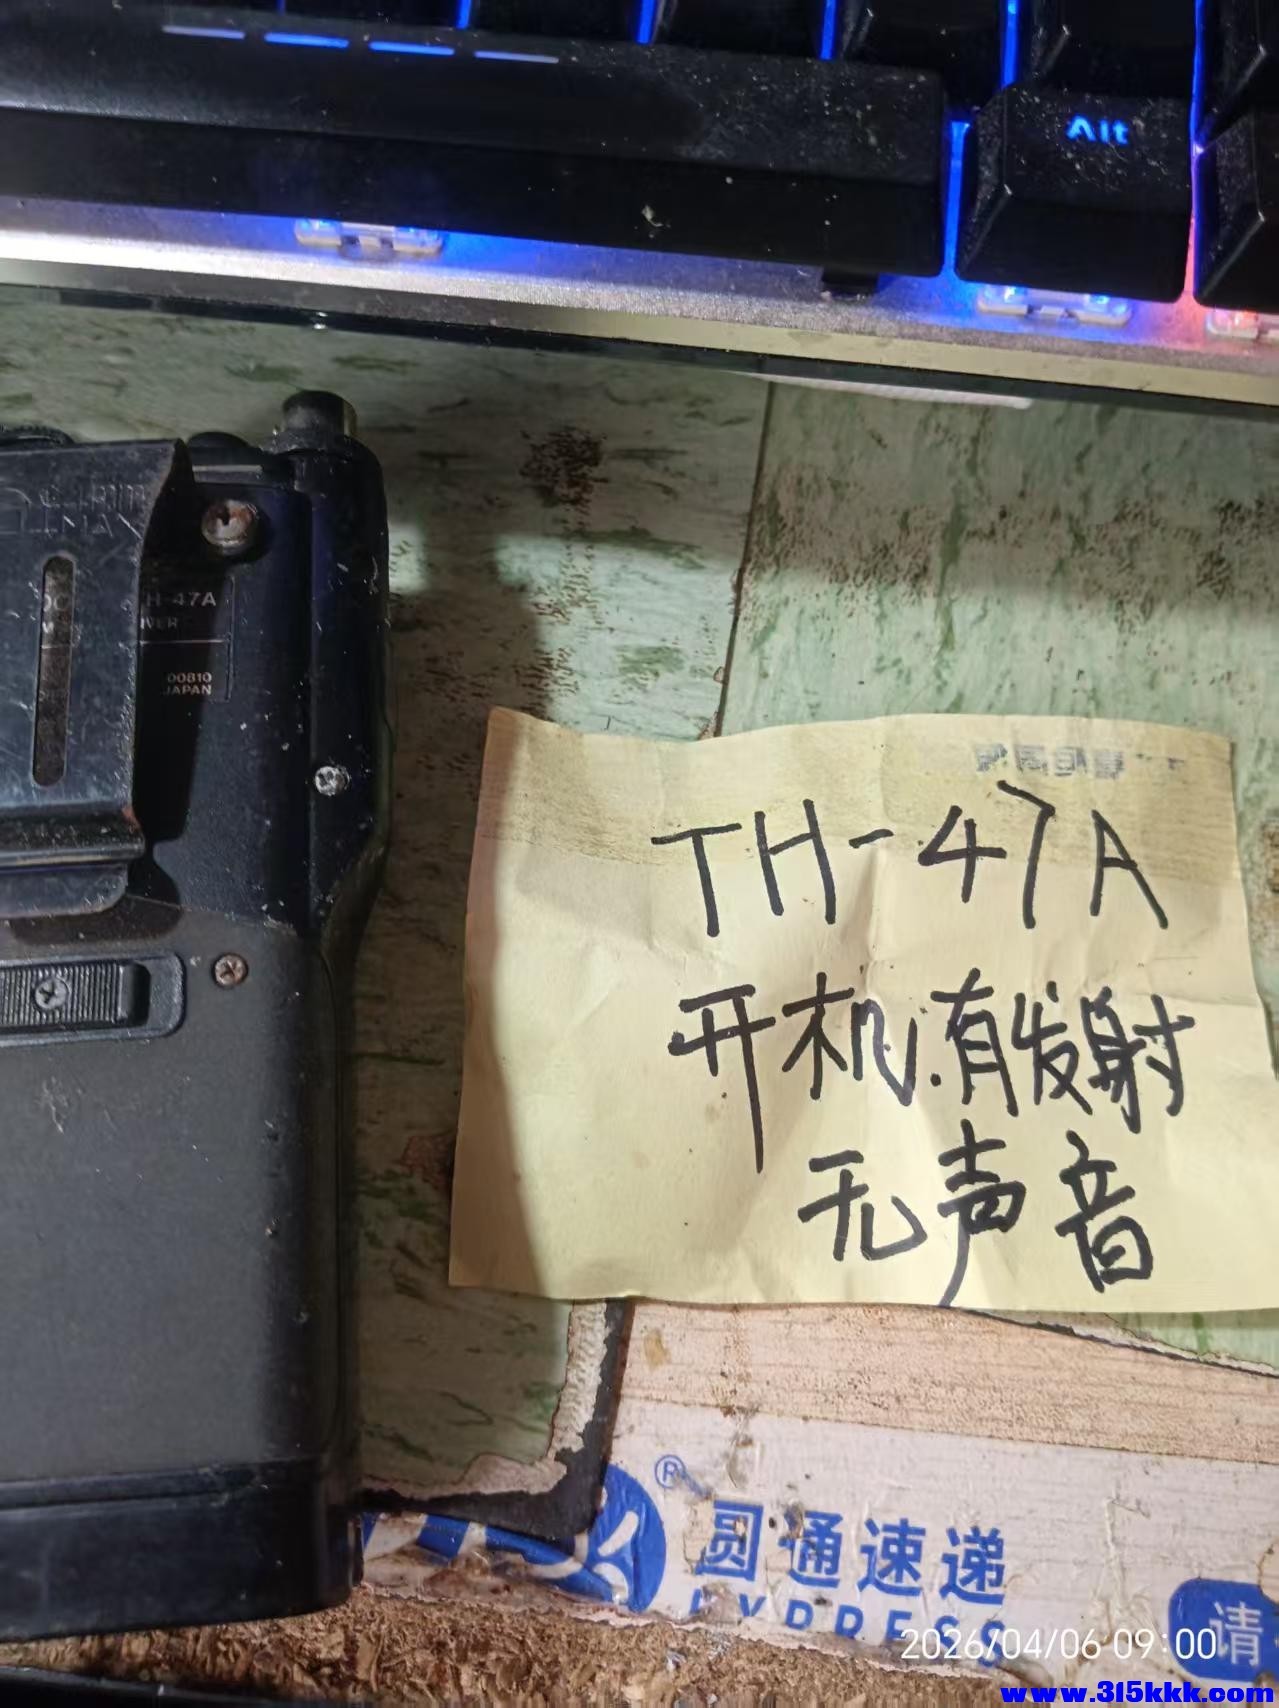 Alt
H-47A
00810
JAPAN
TH-47A
开机.有发射
无声音
®
圆通速递
EXPRESS
请
2026/04/06 09:00
www.315kkk.com